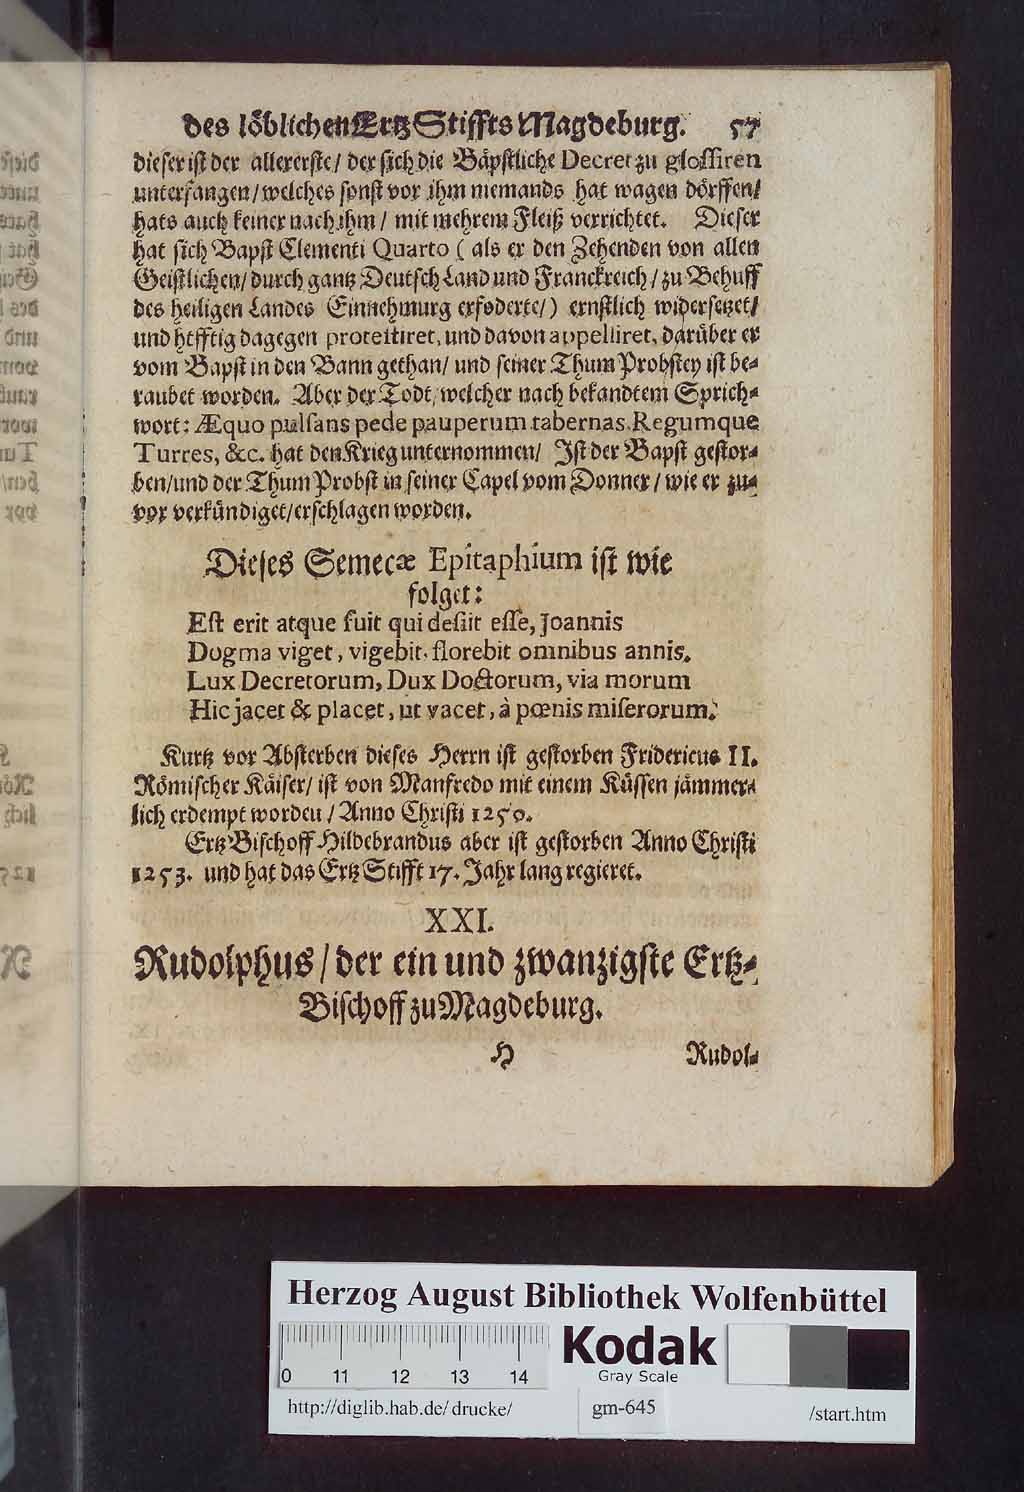 des löblichen Ertz Stiffts Magdeburg. 57
dieser ist der allererste/ der sich die Bäpstliche Decret zu glossiren
unterfangen/ welches sonst vor ihm niemands hat wagen dörffen/
hats auch keiner nach ihm/ mit mehrem Fleiß verrichtet. Dieser
hat sich Bapst Clementi Quarto ( als er den Zehenden von allen
Geistlichen/ durch gantz Deutsch Land und Franckreich/ zu Behuff
des heiligen Landes Einnehmurg erfoderte/) ernstlich widersetzet/
und hefftig dagegen protestiret, und davon appelliret, darüber er
vom Bapst in den Bann gethan/ und seiner Thum Probstey ist be-
raubet worden. Aber der Todt, welcher nach bekandtem Sprich-
wort: Æquo pulsans pede pauperum tabernas Regumque
Turres, &c. hat den Krieg unternommen/ Ist der Bapst gestor-
ben/ und der Thum Probst in seiner Capel vom Donner/ wie er zu-
vor verkündiget/ erschlagen worden.
Dieses Semecæ Epitaphium ist wie
folget:
Est erit atque fuit qui desiit esse, Joannis
Dogma viget, vigebit, florebit omnibus annis.
Lux Decretorum, Dux Doctorum, via morum
Hic jacet & placet, ut vacet, à pœnis miserorum.
Kurtz vor Absterben dieses Herrn ist gestorben Fridericus II.
Römischer Käiser/ ist von Manfredo mit einem Küssen jämmer-
lich erdempt worden/ Anno Christi 1250.
Ertz Bischoff Hildebrandus aber ist gestorben Anno Christi
1253. und hat das Ertz Stifft 17. Jahr lang regieret.
XXI.
Rudolphus/ der ein und zwanzigste Ertz-
Bischoff zu Magdeburg.
H Rudol-
Herzog August Bibliothek Wolfenbüttel
Kodak
Gray Scale
0 11 12 13 14
http://diglib.hab.de/drucke/ gm-645 /start.htm